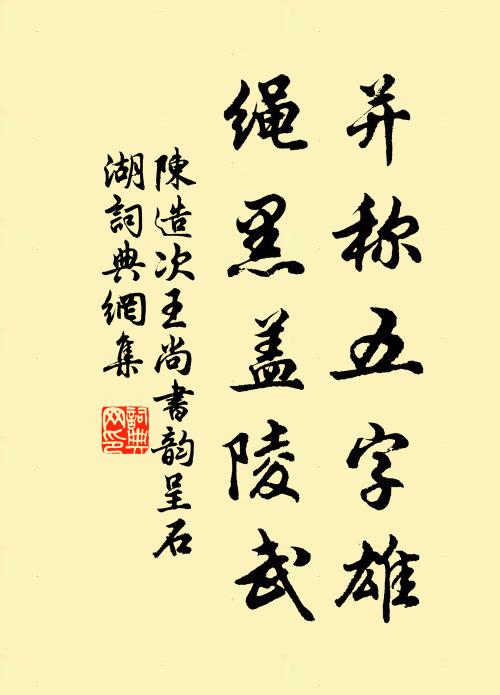 并称五字雄
绳黑盖陵武
陳造次王尚書韵呈石
湖詞典網集
詞典网印